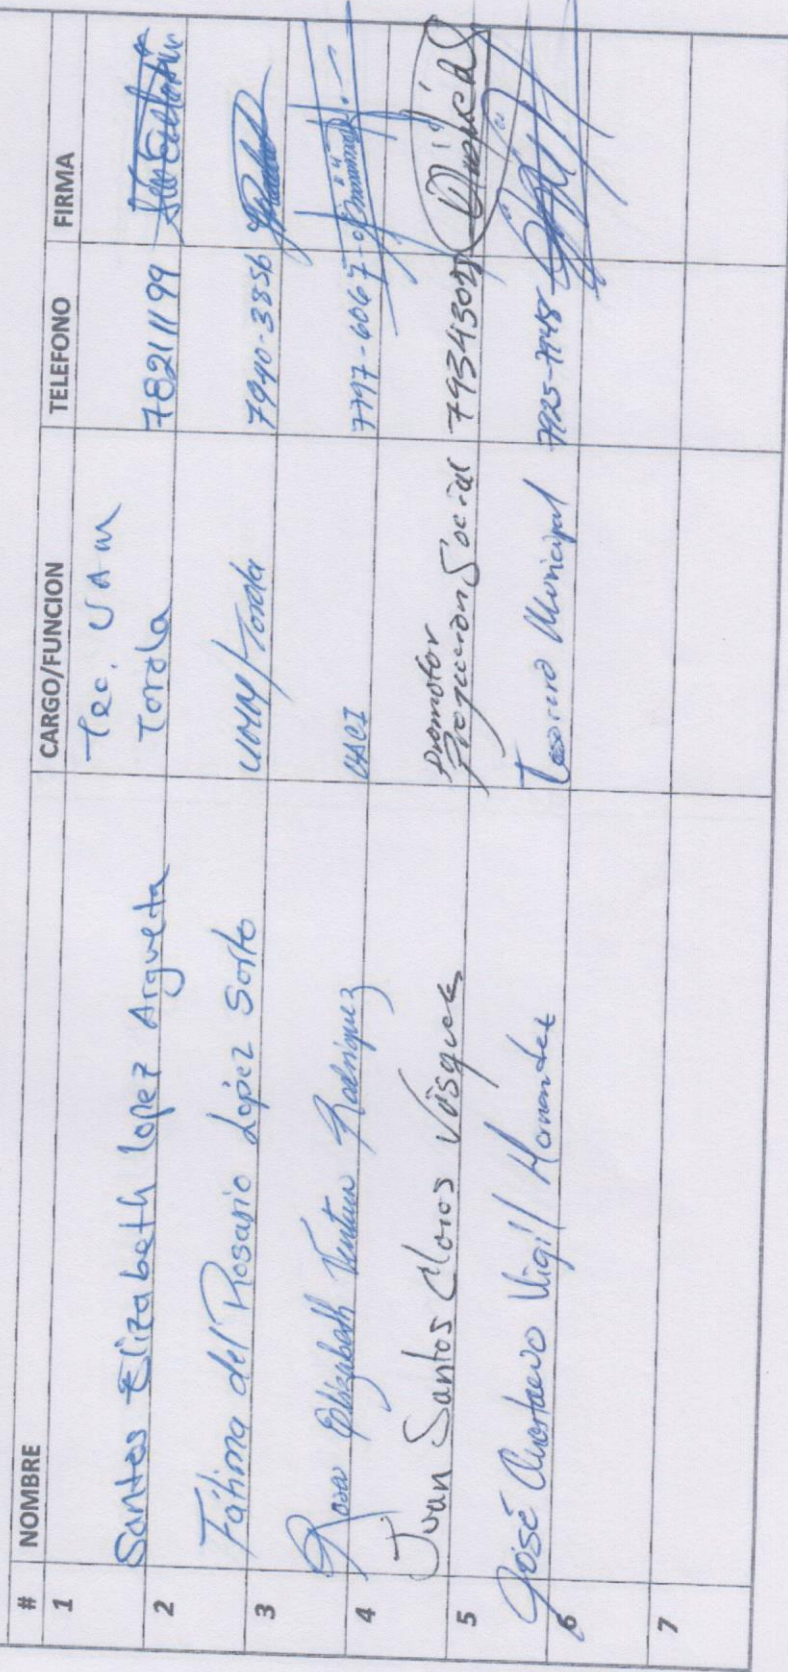 # NOMBRE CARGO/FUNCION TELEFONO FIRMA
1 Santos Elizabeth Lopez Argueta Tec. UAM Torola 78211199
2 Fátima del Rosario López Sorto UMM/Torola 7940-3856
3 Rosa Elizabeth Ventura Rodriguez UACI 7797-6067
4 Juan Santos Claros Vásquez Promotor Social 79343025
5 José Vigil Tesorero Municipal
6
7